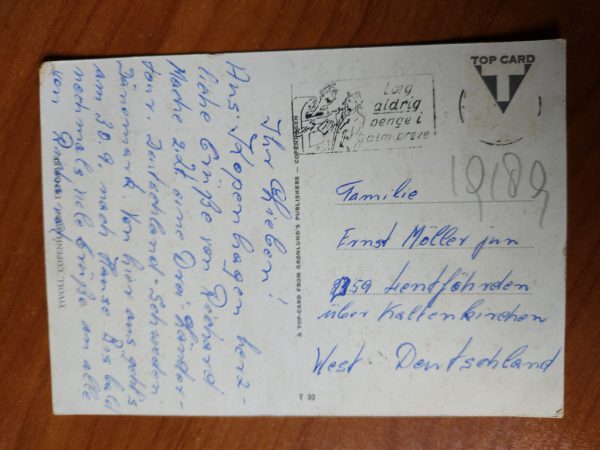 TIVOLI, COPENHAGEN
Ihr Lieben!
Aus Kopenhagen herz-
liche Grüße von Richard
Mache z.Zt eine Drei-Länder-
Tour Deutschland-Schweden
Dänemark. Von hier aus geht's
am 30.9. nach Hause. Bis bald
nochmals viele Grüße an alle
von
A TOP-CARD FROM GRØNLUND'S PUBLISHERS — COPENHAGEN
T 32
TOP CARD
T
Læg
aldrig
penge i
alm breve
19189
Familie
Ernst Möller jun
Lentföhrden
über Kaltenkirchen
West-Deutschland